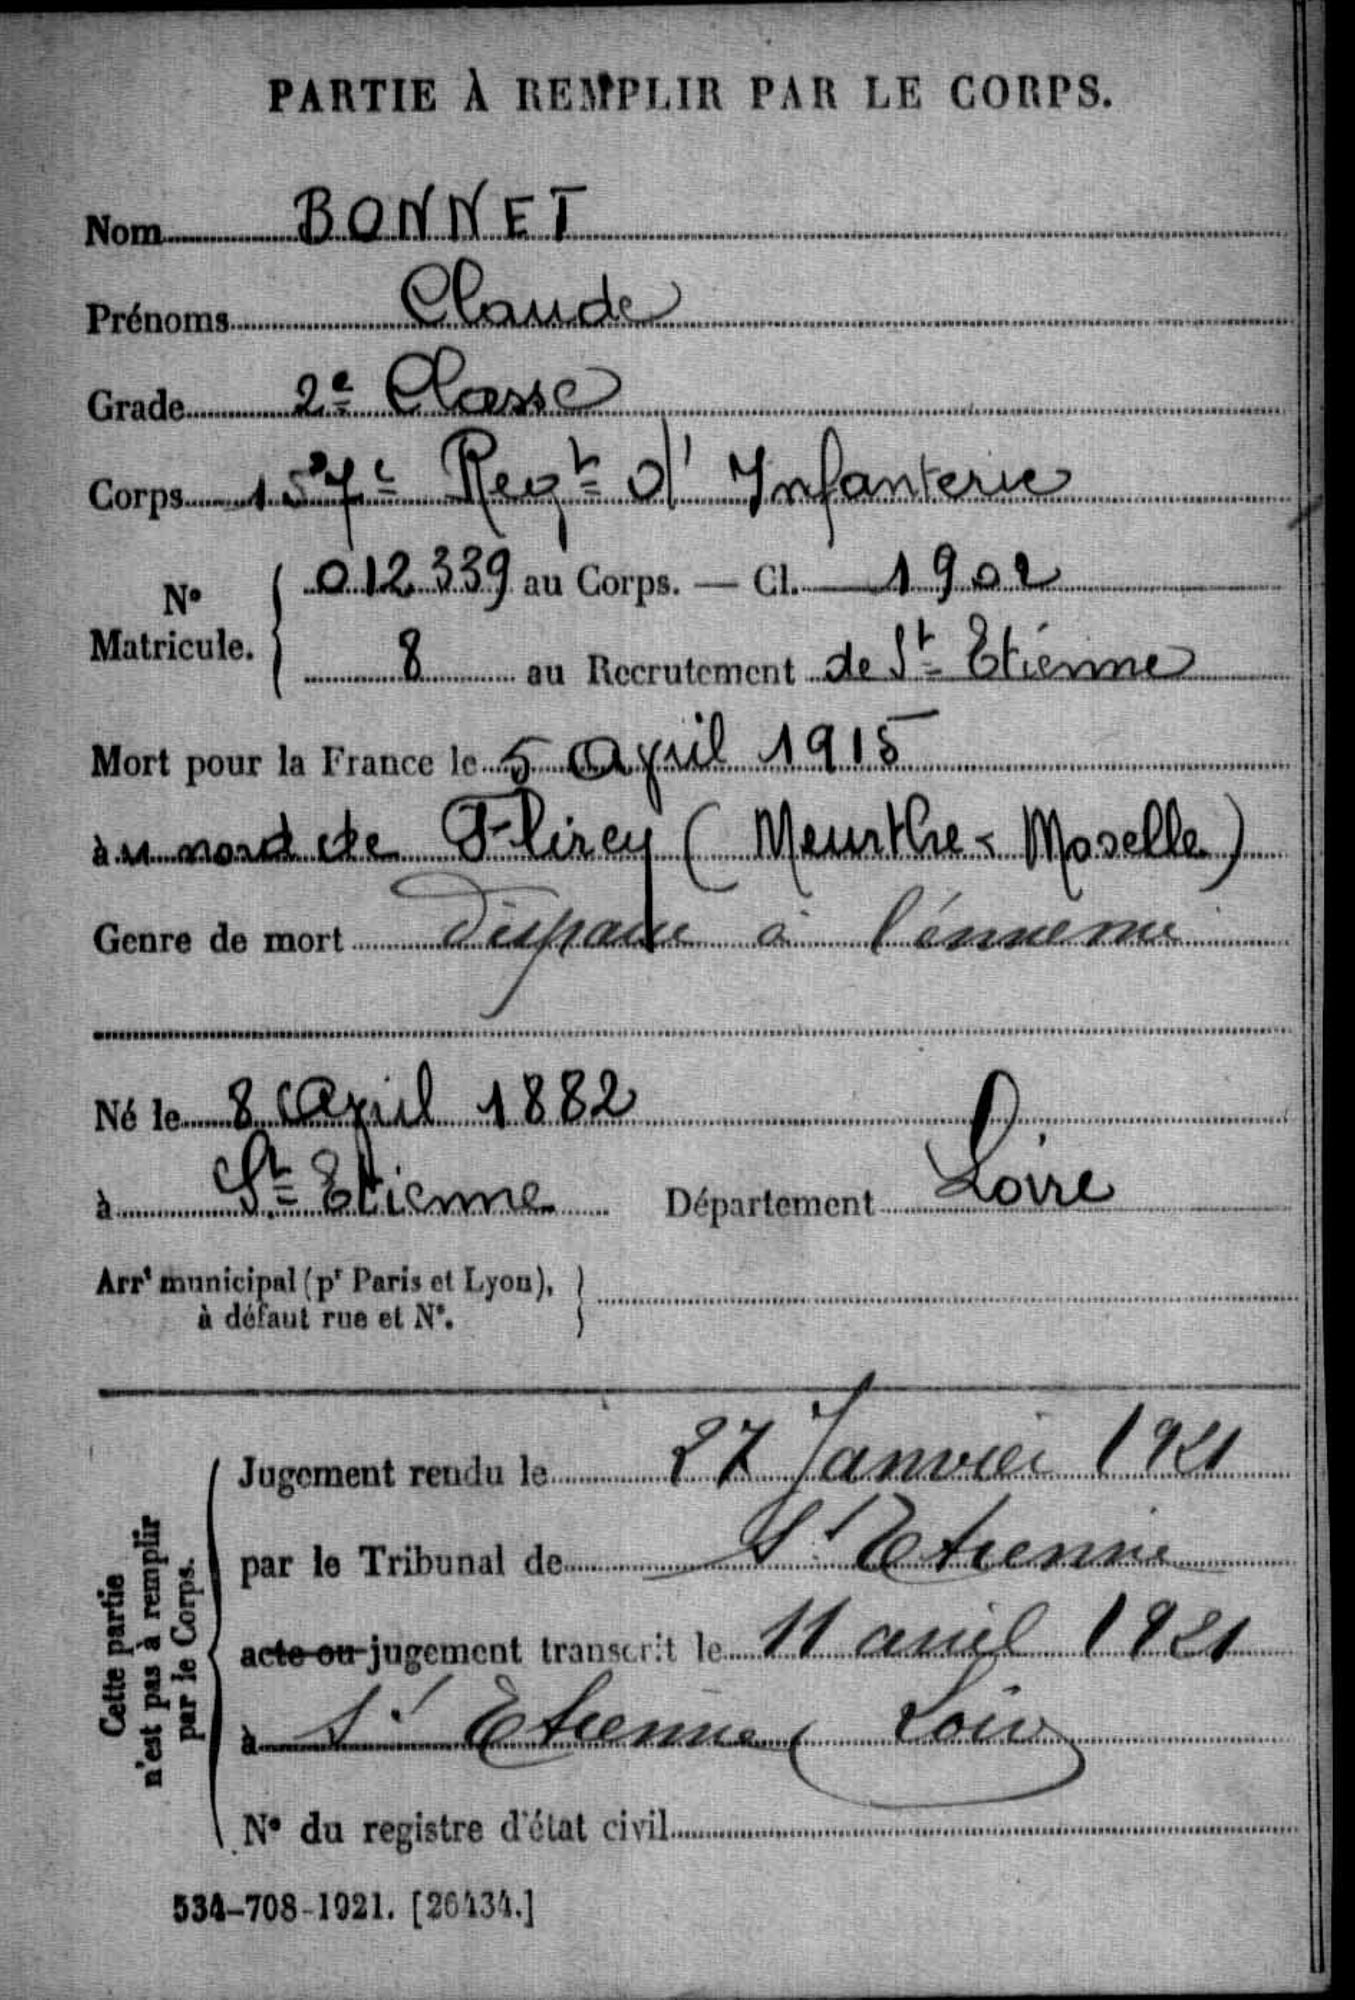 PARTIE À REMPLIR PAR LE CORPS.
Nom BONNET
Prénoms Claude
Grade 2e Classe
Corps 157e Regt d'Infanterie
No Matricule. { 012339 au Corps. — Cl. 1902
8 au Recrutement de St Etienne
Mort pour la France le 5 Avril 1915
au nord de Flirey (Meurthe-Moselle)
Genre de mort disparu à l'énnemi
Né le 8 Avril 1882
à St Etienne Département Loire
Arrt municipal (pr Paris et Lyon), }
à défaut rue et No.
Cette partie
n'est pas à remplir
par le Corps.
Jugement rendu le 27 Janvier 1921
par le Tribunal de St Etienne
acte ou jugement transcrit le 11 avril 1921
à St Etienne Loire
No du registre d'état civil
534-708-1921. [26434.]